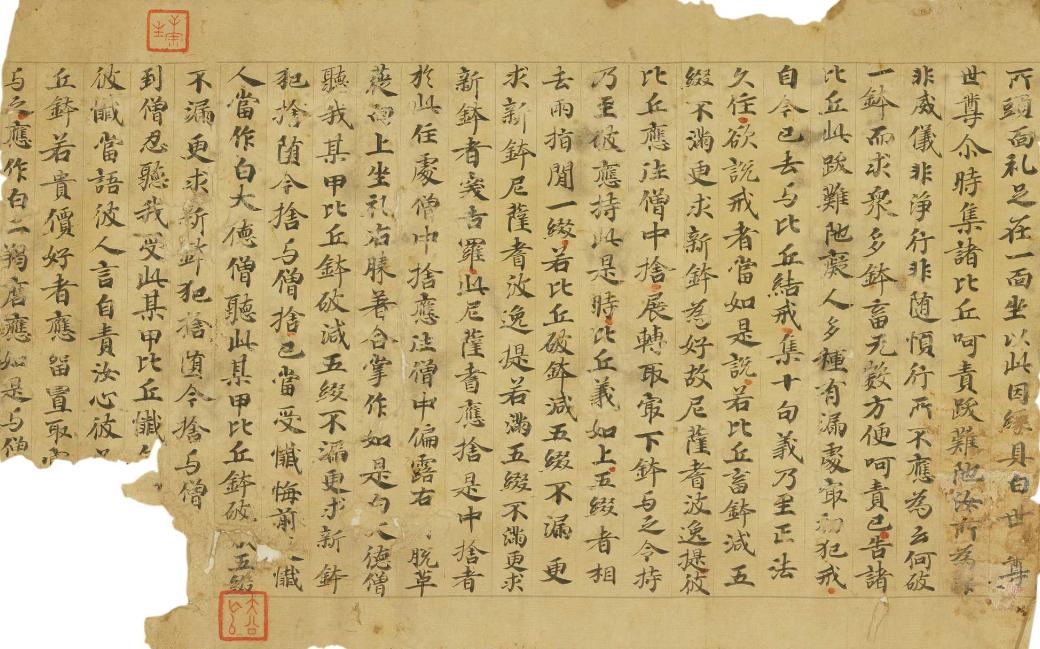 所頭面礼足在一面坐以此因緣具白世尊
世尊尒時集諸比丘呵責跋難陁汝所為
非威儀非淨行非随慎行所不應為云何破
一鉢而求衆多鉢畜无數方便呵責已告諸
比丘此跋難陁癡人多種有漏處冣初犯戒
自今已去与比丘結戒集十句義乃至正法
久住欲說戒者當如是說若比丘畜鉢減五
綴不漏更求新鉢為好故尼薩耆波逸提彼
比丘應往僧中捨展轉取冣下鉢与之令持
乃至破應持此是時比丘義如上五綴者相
去兩指間一綴若比丘破鉢減五綴不漏更
求新鉢尼薩耆波逸提若滿五綴不漏更求
新鉢者突吉羅此尼薩耆應捨是中捨者
於此住處僧中捨應往僧中偏露右脫革
屣向上坐礼右膝著合掌作如是白大德僧
聽我某甲比丘鉢破減五綴不漏更求新鉢
犯捨随今捨与僧捨已當受懺悔前懺
人當作白大德僧聽此某甲比丘鉢破五綴
不漏更求新鉢犯捨堕今捨与僧
到僧忍聽我受此某甲比丘懺
彼懺當語彼人言自責汝心彼
丘鉢若貴價好者應留置取
与之應作白二羯磨應如是与僧